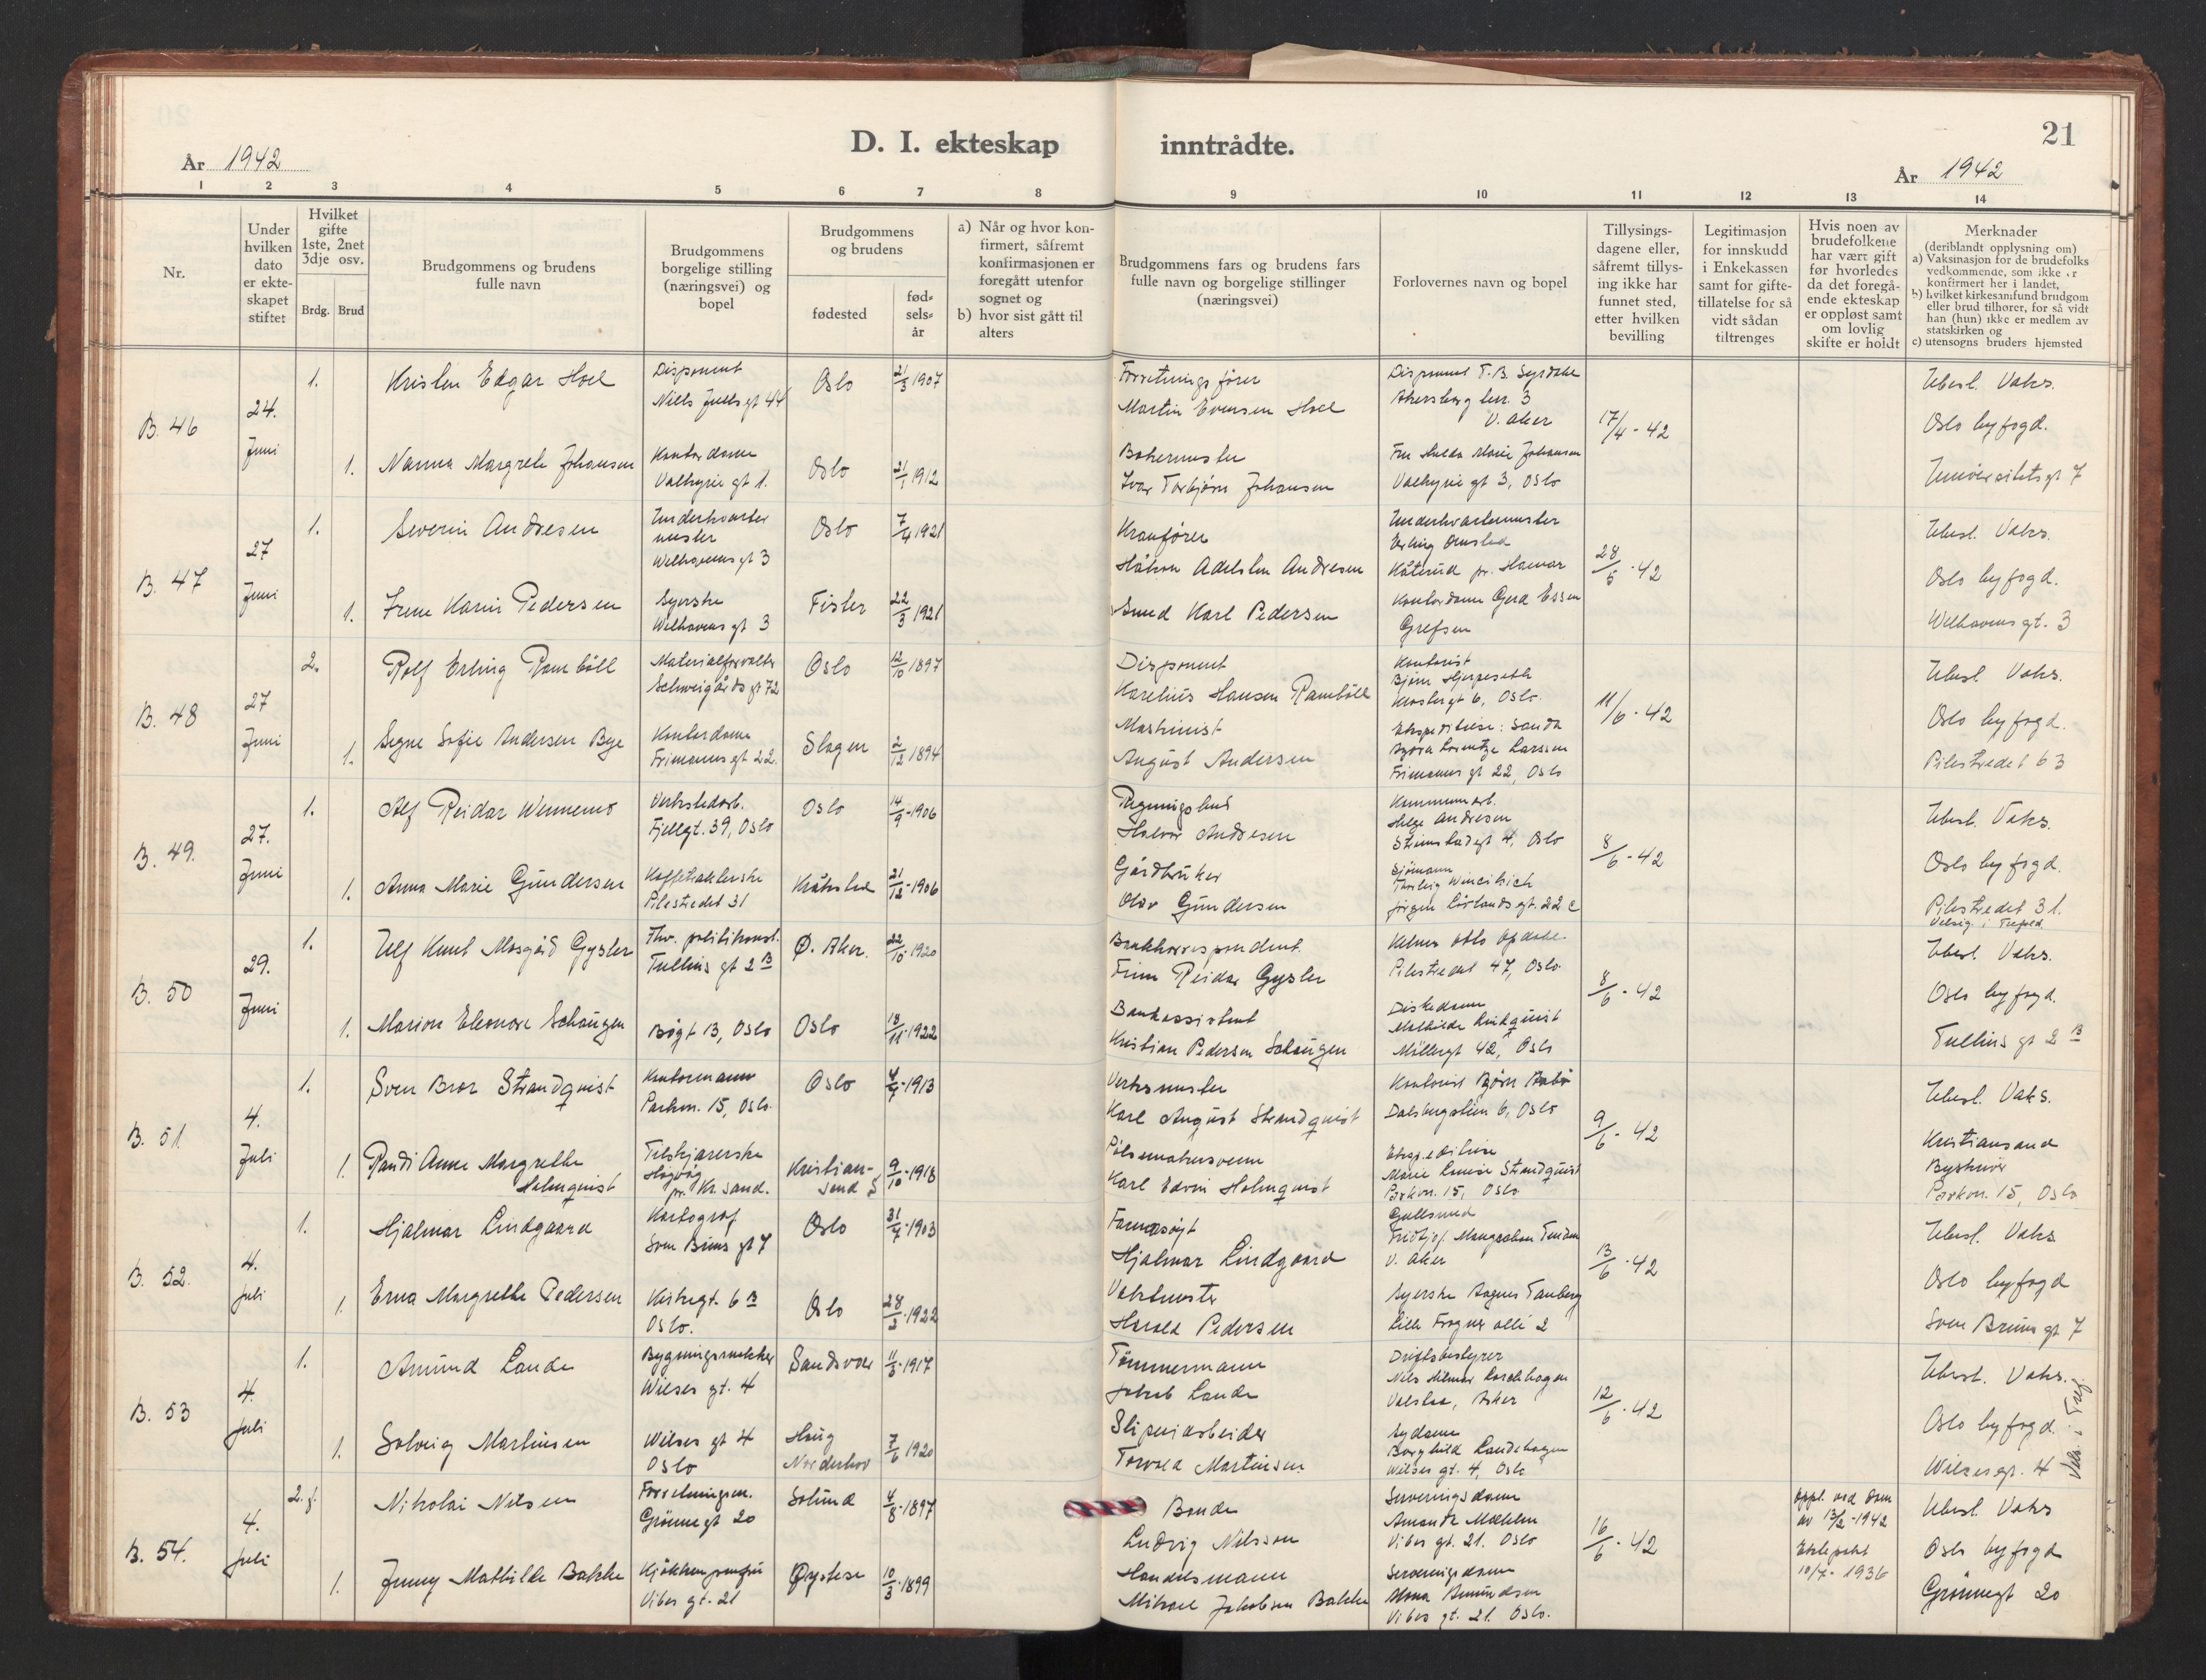 D. I. ekteskap inntrådte.
21
År 1942
År 1942
1 2 3 4 5 6 7 8 9 10 11 12 13 14
Nr.
Under
hvilken
dato
er ekte-
skapet
stiftet
Hvilket
gifte
1ste, 2net
3dje osv.
Brdg. Brud
Brudgommens og brudens
fulle navn
Brudgommens
borgelige stilling
(næringsvei) og
bopel
Brudgommens
og brudens
fødested
fød-
sels-
år
a) Når og hvor kon-
firmert, såfremt
konfirmasjonen er
foregått utenfor
sognet og
b) hvor sist gått til
alters
Brudgommens fars og brudens fars
fulle navn og borgelige stillinger
(næringsvei)
Forlovernes navn og bopel
Tillysings-
dagene eller,
såfremt tillys-
ing ikke har
funnet sted,
etter hvilken
bevilling
Legitimasjon
for innskudd
i Enkekassen
samt for gifte-
tillatelse for så
vidt sådan
tiltrenges
Hvis noen av
brudefolkene
har vært gift
før hvorledes
da det foregå-
ende ekteskap
er oppløst samt
om lovlig
skifte er holdt
Merknader
(deriblandt opplysning om)
a) Vaksinasjon for de brudefolks
vedkommende, som ikke er
konfirmert her i landet,
b) hvilket kirkesamfund brudgom
eller brud tilhører, for så vidt
han (hun) ikke er medlem av
statskirken og
c) utensogns bruders hjemsted
B. 46
24.
Juni
1.
Edgar Hoel
Disponent
Niels Juels gt 44
Oslo
21/3 1907
Forretningsfører
Martin Evensen Hoel
Disponent T. B.
3
V. Aker
17/4 - 42
Ubesl. Vaks.
Oslo byfogd.
Universitetsgt 7
1.
Nanna Margrete Johansen
Kontordame
Valkyrie gt 1.
Oslo
21/1 1912
Bakermester
Ivar Torbjørn Johansen
Fru Hulda Marie Johansen
Valkyrie gt 3, Oslo
B. 47
27
Juni
1.
Severin Andresen
Underkvarter
mester
Welhavens gt 3
Oslo
7/4 1921
Kranfører
Håkon Adelsten Andresen
Underkvartermester
Erling
Kåterud pr. Hamar
28/5 - 42
Ubesl. Vaks.
Oslo byfogd.
Welhavens gt. 3
1.
Irene Karin Pedersen
Syerske
Welhavens gt 3
Fister
22/3 1921
Smed Karl Pedersen
Kontordame Gerd Essen
Grefsen
B. 48
27
Juni
2.
Rolf Erling Rambøll
Materialforvalter
Schweigårds gt 72
Oslo
12/10 1897
Disponent
Karelius Hansen Rambøll
Kontorist
Bjørn Hjerpeseth
gt 6, Oslo.
11/6 - 42
Ubesl Vaks.
Oslo byfogd.
Pilestredet 63
1.
Signe Sofie Andersen Bye
Kontordame
Frimanns gt 22.
Slagen
2/12 1894
Maskinist
August Andersen
Larssen
Frimanns gt 22, Oslo
B. 49.
27.
Juni
1.
Alf Reidar Wennemo
Verkstedarb.
Fjellgt. 39, Oslo
Oslo
14/9 - 1906
Regningsbud
Halvor Andresen
Kommunearb.
Helge Andresen
Strømstadgt 4, Oslo
8/6 - 42
Ubesl. Vaks.
Oslo byfogd.
Pilestredet 31.
1.
Anna Marie Gundersen
Pilestredet 31
21/12 - 1906
Gårdbruker
Olav Gundersen
Sjømann
Jørgen Løvlands gt. 22 c
B. 50
29.
Juni
1.
Ulf Knut Mosgård Gysler
Fhv. politikonst.
Tullins gt 2 B
Ø. Aker.
22/10 - 1920
Bankkorrespondent
Finn Reidar Gysler
Kelner Otto Opdahl.
Pilestredet 47, Oslo
8/6 - 42
Ubesl. Vaks.
Oslo byfogd.
Tullins gt 2 B
1.
Marion Eleonore Schaugen
Bøgt 13, Oslo
Oslo
18/11 - 1922
Bankassistent
Kristian Pedersen Schaugen
Diskedame
Mathilde Lindquist
Møllergt 42, Oslo
B. 51
4.
Juli
1.
Sven Bror Strandquist
Kontormann
Parkvn. 15, Oslo.
Oslo
4/7 - 1913
Verksmester
Karl August Strandquist
Kontorist Bjørn
Dalsbergstien 6, Oslo
9/6 - 42
Ubesl. Vaks.
Kristiansand
Byskriver
Parkvn. 15, Oslo
1.
Randi Anne Margrethe
Holmquist
Tilskjærerske
Høgvåg
pr. Kr. sand.
Kristian-
sand S
9/10 - 1918
Pølsemakersvenn
Karl Edvin Holmquist
Ekspeditrise
Marie Louise Strandquist
Parkvn. 15, Oslo
B. 52.
4.
Juli
1.
Hjalmar Lindgaard
Kartograf
Sven Bruns gt 7
Oslo
31/7 - 1903
Hjalmar Lindgaard
Gullsmed
V. Aker
13/6 - 42
Ubesl. Vaks
Oslo byfogd
Sven Bruns gt 7
1.
Erna Margrethe Pedersen
gt. 6 B
Oslo.
Oslo
28/2 - 1922
Vaktmester
Harald Pedersen
Syerske Agnes Tanberg
Lille Frogner alle 2
B. 53
4.
Juli
1.
Amund Lande
Bygningssnekker
Wilses gt. 4
Sandsvær
11/3 - 1917
Tømmermann
Jakob Lande
Driftsbestyrer
Nils Hilmar
Asker
12/6 - 42
Ubesl. Vaks.
Oslo byfogd.
Wilses gt. 4
1.
Solveig Martinsen
Wilses gt 4
Oslo
Haug
Norderhov
7/6 1920
Sliperiarbeider
Torvald Martinsen
Sydame
Borghild Landehagen
Wilses gt. 4, Oslo
B. 54.
4.
Juli
2. f.
Nikolai Nilsen
Forretningsm.
Grønne gt 20
Solund
4/8 - 1897
Bonde
Ludvig Nilsson
Serveringsdame
Amanda Mæhlen
Vibes gt. 21. Oslo
16/6 - 42
Oppl. ved dom
av 13/2 - 1942
10/7 - 1936
Ubesl Vaks
Oslo byfogd
Grønnegt 20
1.
Jenny Mathilde Bakke
Kjøkkenjomfru
Vibes gt. 21
Øystese
10/3 - 1899
Handelsmann
Mikael Jakobsen Bakke
Serveringsdame
Mona Amundsen
Vibes gt. 21. Oslo.